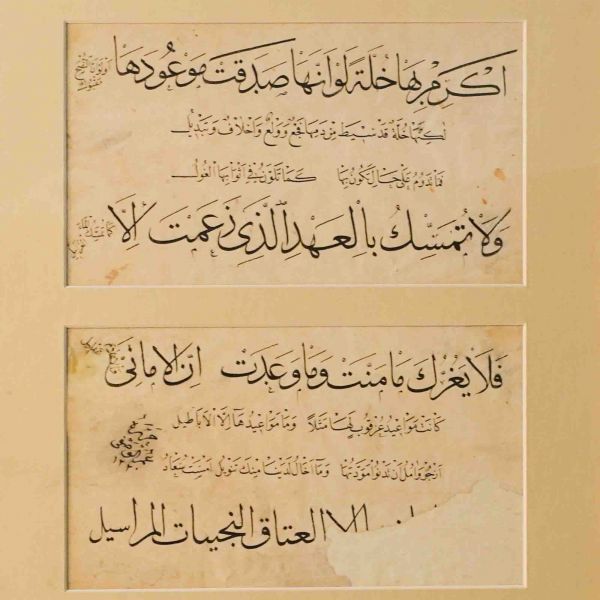 اَكْرِمْ بِهَا خُلَّةً لَوْ اَنَّهَا صَدَقَتْ مَوْعُودَهَا
اَوْ لَوْ اَنَّ النُّصْحَ مَقْبُولُ
لٰكِنَّهَا خُلَّةٌ قَدْ سِيطَ مِنْ دَمِهَا فَجْعٌ وَوَلْعٌ وَاِخْلَافٌ وَتَبْدِيلُ
فَمَا تَدُومُ عَلَى حَالٍ تَكُونُ بِهَا كَمَا تَلَوَّنُ فِي اَثْوَابِهَا الْغُولُ
وَلَا تُمَسِّكُ بِالْعَهْدِ الَّذِي زَعَمَتْ اِلَّا
فَلَا يَغُرَّكَ مَا مَنَتْ وَمَا وَعَدَتْ اِنَّ الْاَمَانِيَّ
كَانَتْ مَوَاعِيدُ عُرْقُوبٍ لَهَا مَثَلاً وَمَا مَوَاعِيدُهَا اِلَّا الْاَبَاطِيلُ
اَرْجُو وَآمُلُ اَنْ تَدْنُو مَوَدَّتُهَا وَمَا اِخَالُ لَدَيْنَا مِنْكِ تَنْوِيلُ اَمْسَتْ سُعَادُ
اِلَّا العتاق النجيبات المراسيل